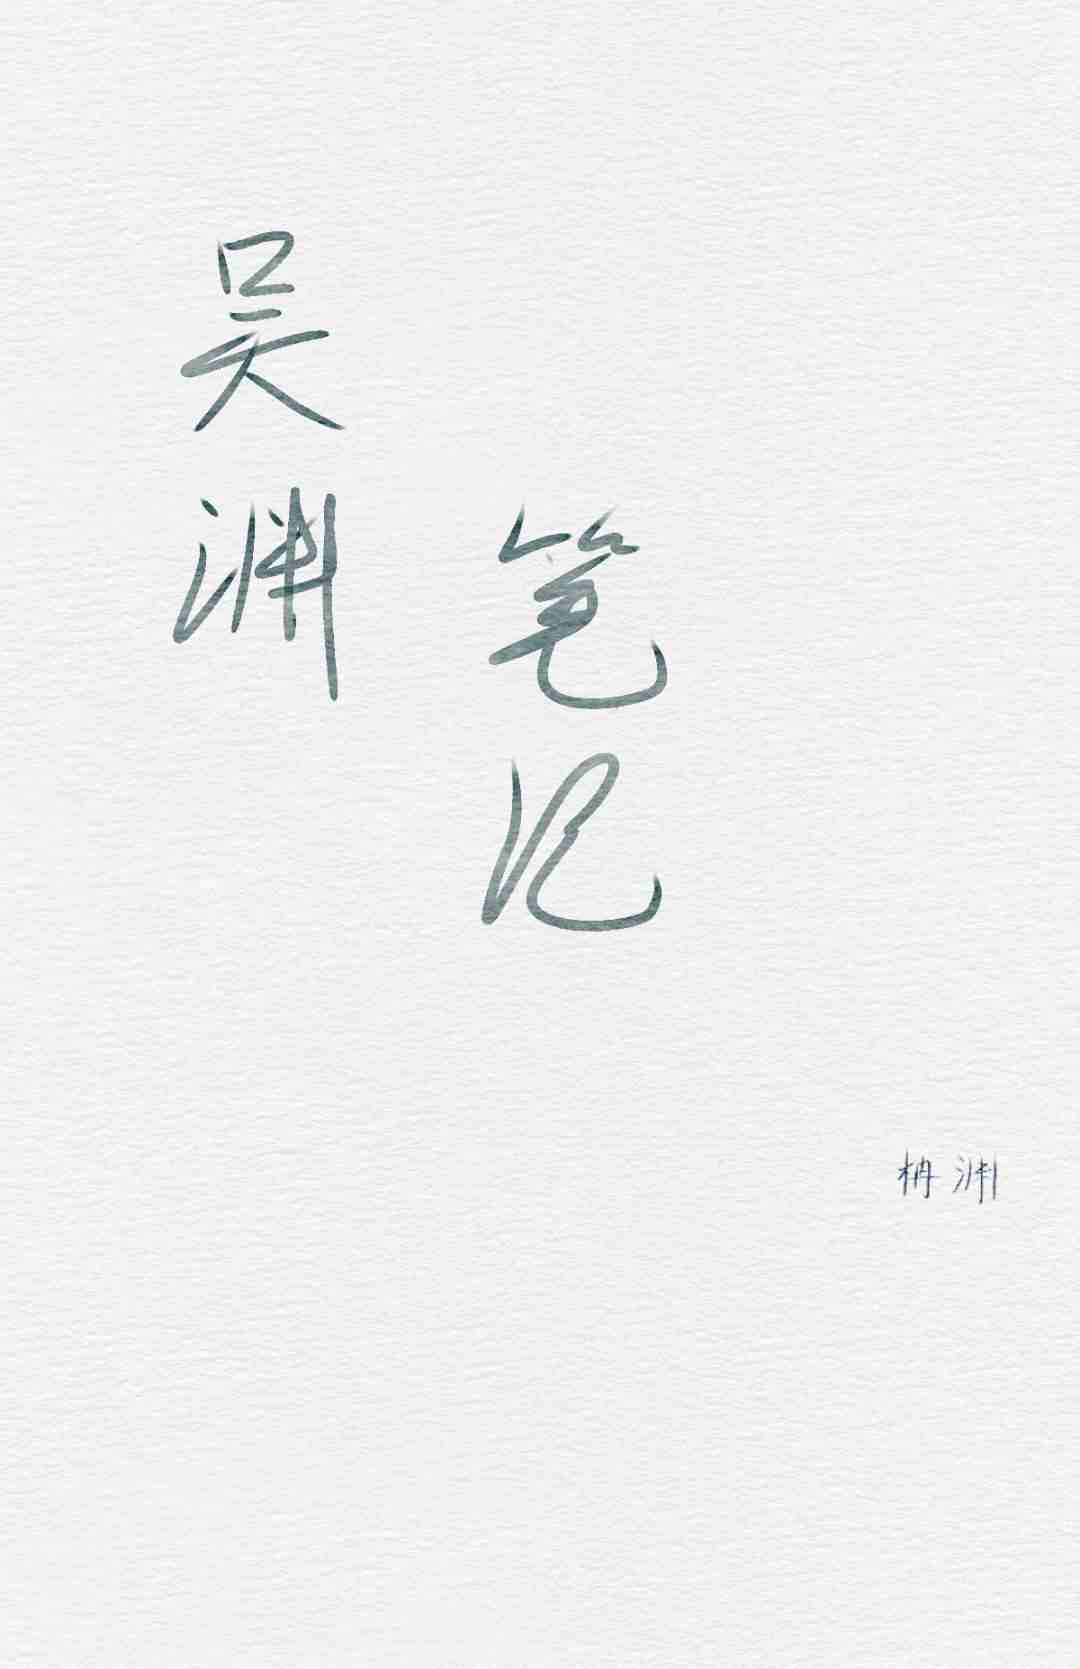 吴渊
笔记
枬渊